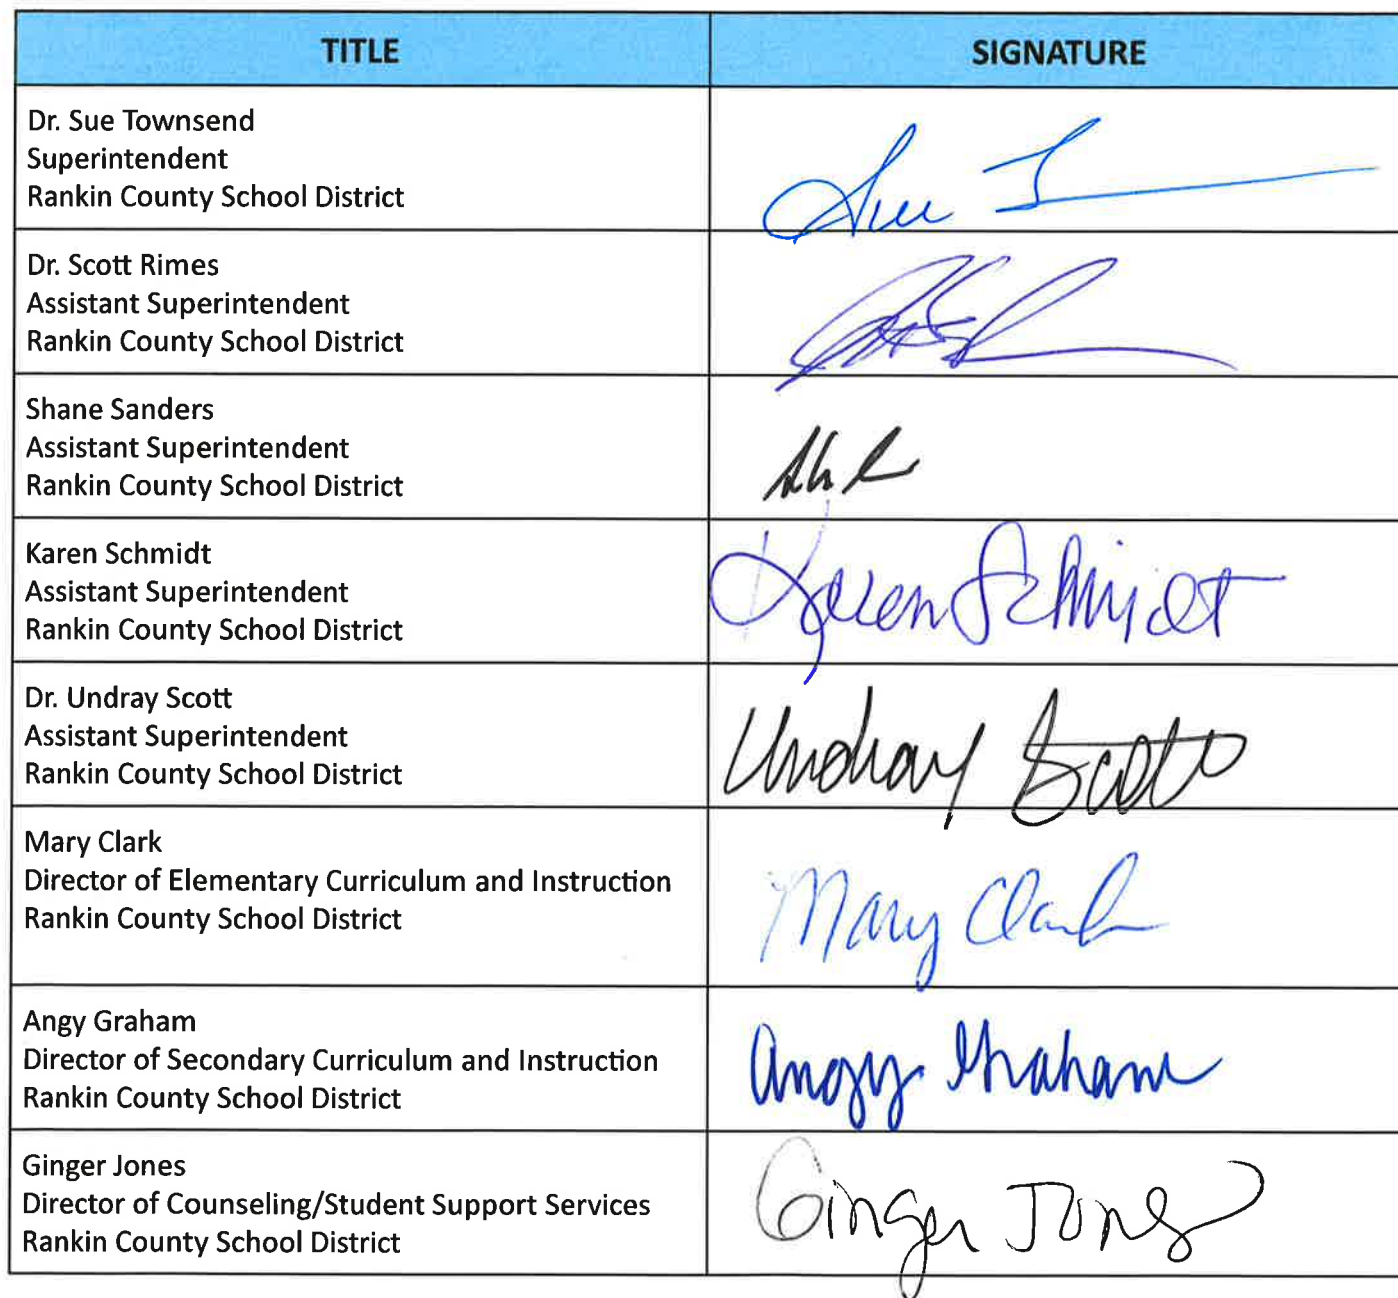 TITLE SIGNATURE
Dr. Sue Townsend
Superintendent
Rankin County School District
Sue T
Dr. Scott Rimes
Assistant Superintendent
Rankin County School District
Shane Sanders
Assistant Superintendent
Rankin County School District
Karen Schmidt
Assistant Superintendent
Rankin County School District
Karen Schmidt
Dr. Undray Scott
Assistant Superintendent
Rankin County School District
Undray Scott
Mary Clark
Director of Elementary Curriculum and Instruction
Rankin County School District
Mary Clark
Angy Graham
Director of Secondary Curriculum and Instruction
Rankin County School District
Angy Graham
Ginger Jones
Director of Counseling/Student Support Services
Rankin County School District
Ginger Jones